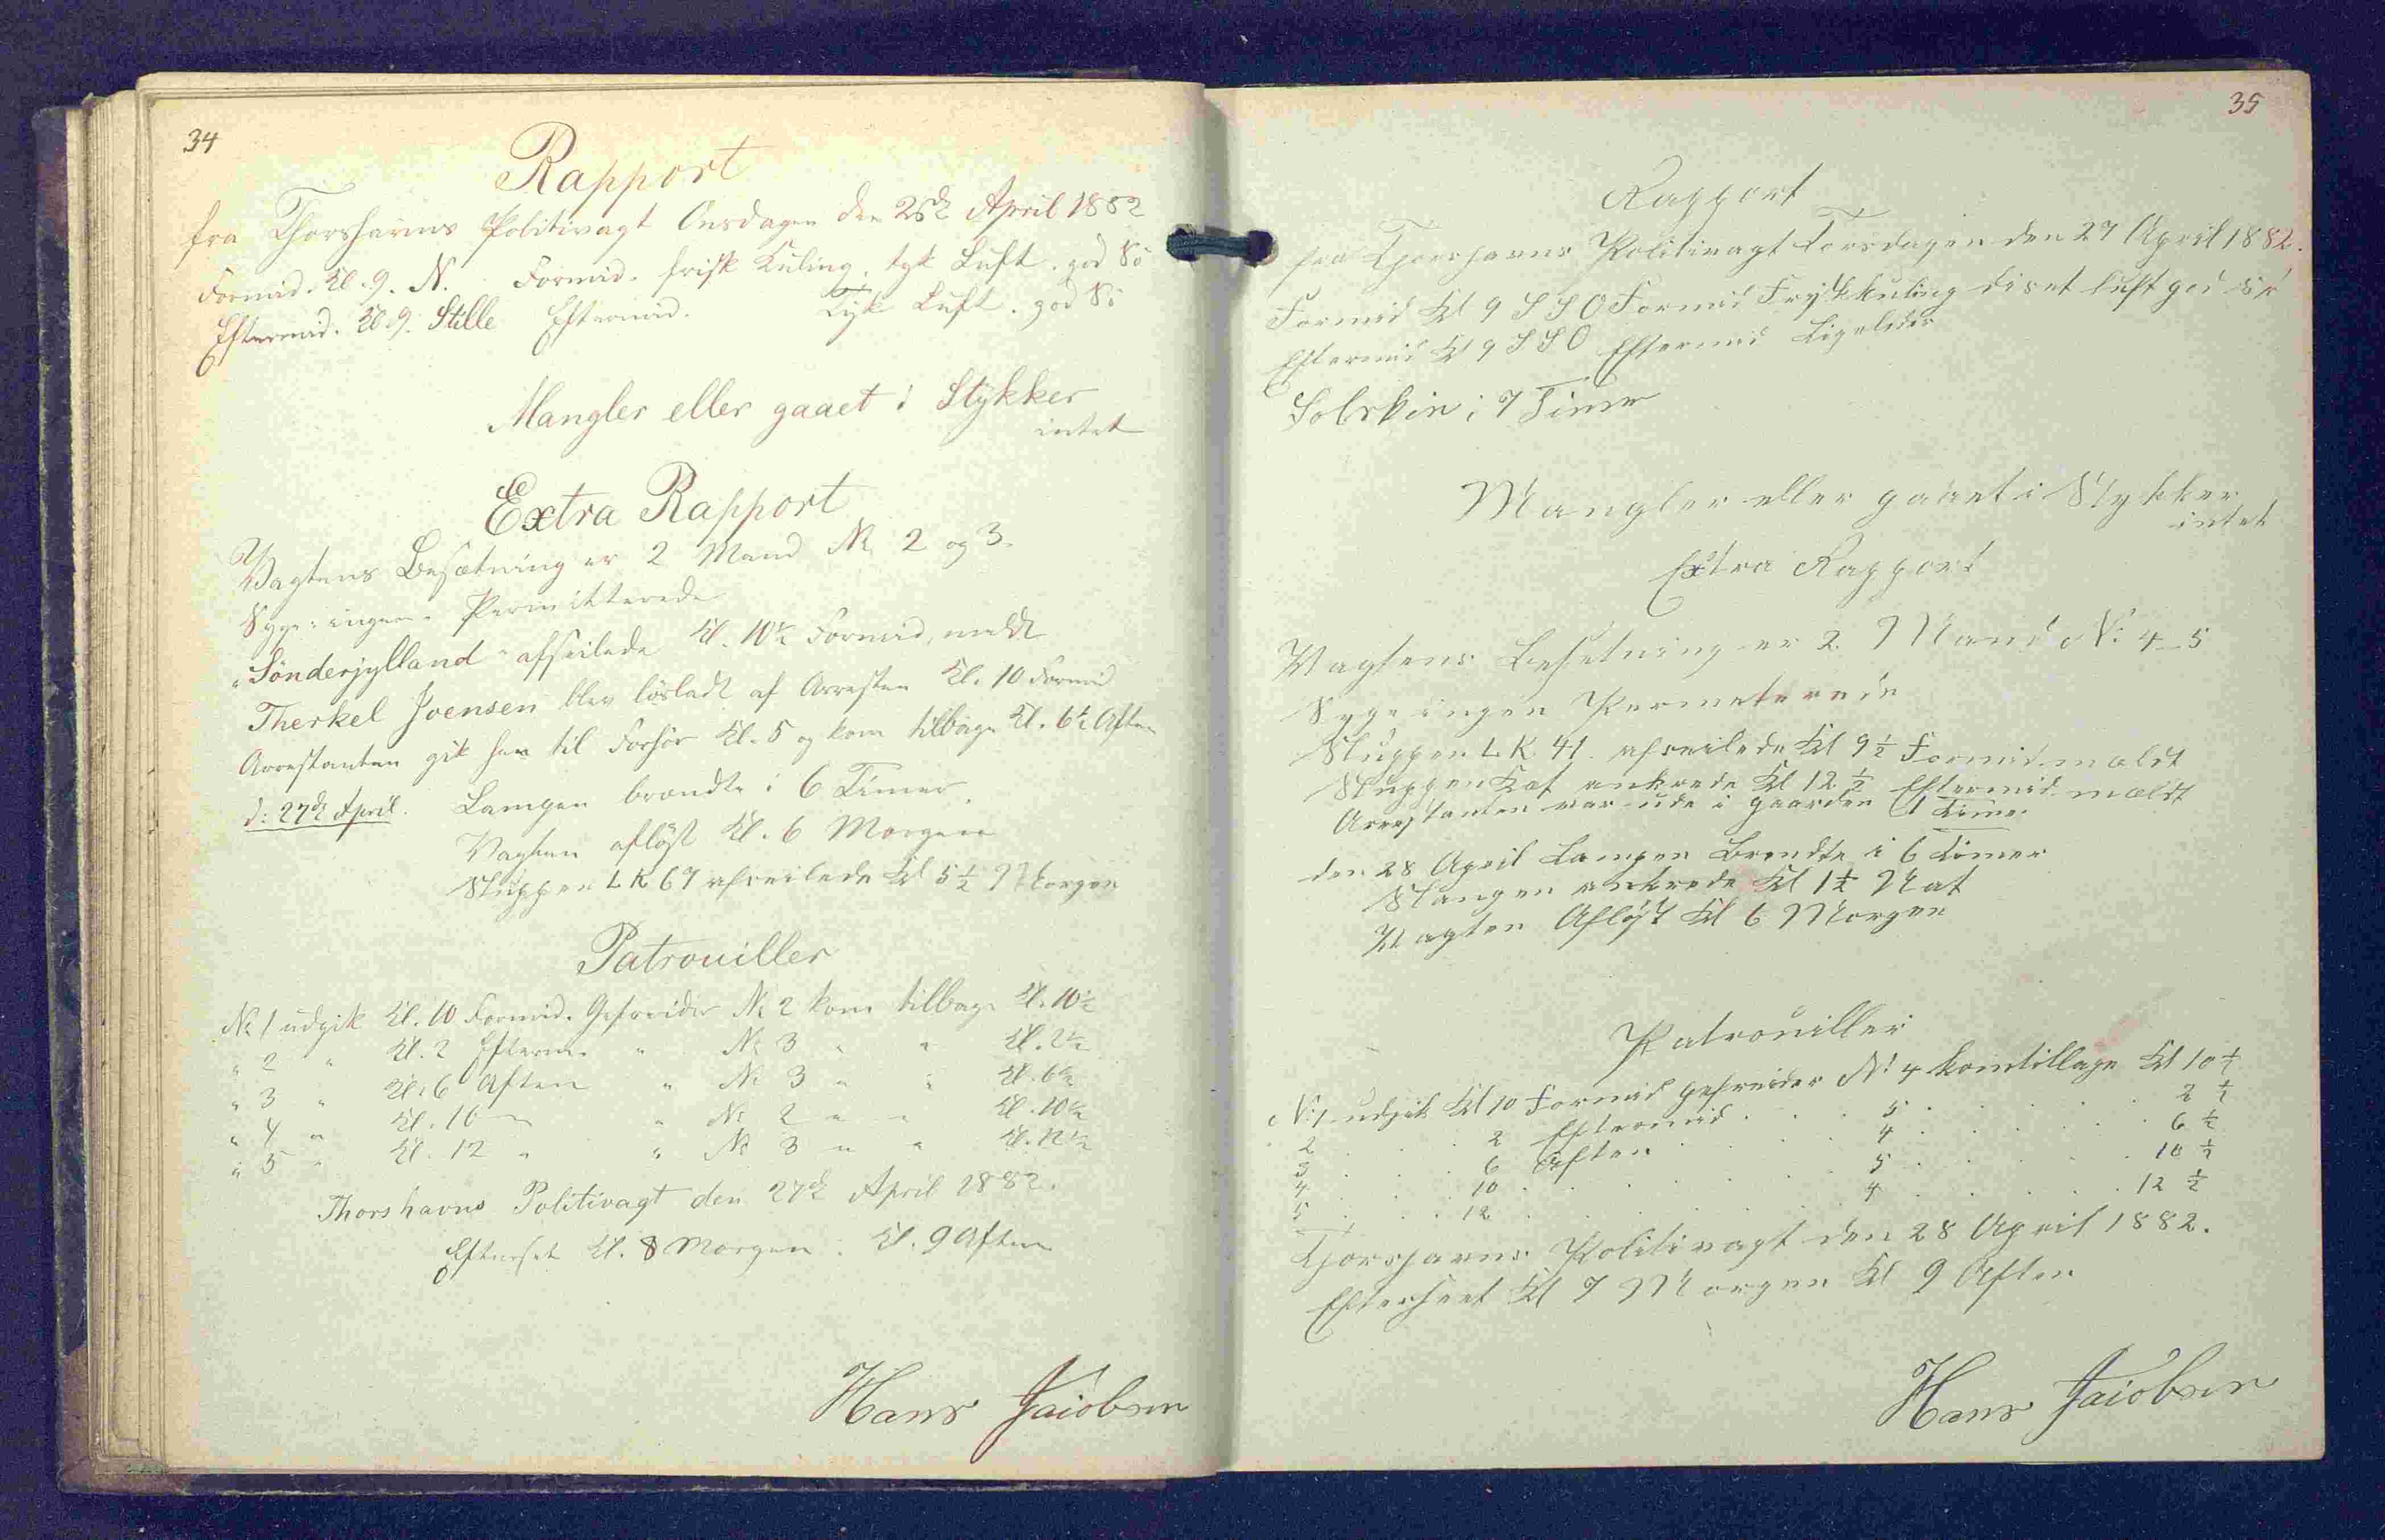 34
Rapport
fra Thorshavns Politivagt Onsdagen den 26de April 1882
Formid. Kl. 9. N. Formid. frisk Kuling, tyk Luft. god Sö
Eftermid. Kl. 9. Stille Eftermid. Tyk Luft. god Sö
Mangler eller gaaet i Stykker
intet
Extra Rapport
Vagtens Besætning er 2 Mand No 2 og 3.
Syge: ingen. Permitterede
"Sönderjylland" afseilede Kl. 10½ Formid, meldt
Therkel Joensen blev lösladt af Arresten Kl. 10 Formid
Arrestanten gik hen til Forhör Kl. 5 og kom tilbage Kl. 6½ Aften
d: 27de April. Lampen brændte i 6 Timer.
Vagten aflöst Kl. 6 Morgen
Sluppen L K 67 afseilede Kl 5½ Morgen
Patrouiller
No 1 udgik Kl. 10 Formid. Gefreider No 2 kom tilbage Kl. 10½
" 2 " Kl. 2 Efterm. " No 3 " " Kl. 2½
" 3 " Kl. 6 Aften " No 3 " " Kl. 6½
" 4 " Kl. 10 " " No 2 " " Kl. 10½
" 5 " Kl. 12 " " No 3 " " Kl. 12½
Thorshavns Politivagt den 27de April 1882.
Efterset Kl. 8 Morgen. Kl. 9 Aften
Hans Jacobsen
35
Rapport
fra Thorshavns Politivagt Torsdagen den 27 April 1882.
Formid Kl 9 SSO Formid Friskkuling diset luft god Sö
Eftermid Kl 9 SSO Eftermid Ligeledes
Solskin i 7 Timer
Mangler eller gaaet i Stykker
intet
Extra Rapport
Vagtens Besetning er 2 Mand No: 4-5
Syge ingen Permeterede
Sluppen L K 41. afseilede Kl 9½ Formid mældt
Sluppen ankrede Kl 12½ Eftermid mældt
Arrestanten var ude i gaarden 1 Time.
den 28 April Lampen Brendte i 6 Timer
Slangen ankrede Kl 1½ Nat
Vagten Aflöst Kl 6 Morgen
Patrouiller
No: 1 udgik Kl 10 Formid gefreider No: 4 kom tilbage Kl 10½
2 . . . 2 Eftermid . . . 5 . . . 2½
3 . . . 6 Aften . . . 4 . . . 6½
4 . . . 10 . . . 5 . . . 10½
5 . . . 12 . . . 4 . . . 12½
Thorshavns Politivagt den 28 April 1882.
Efterseet Kl 7 Morgen Kl 9 Aften
Hans Jacobsen